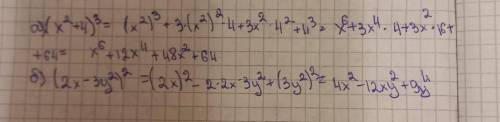 а) (x²+4)³ = (x²)³+3·(x²)²·4+3x²·4²+4³ = x⁶+3x⁴·4+3x²·16+
+64= x⁶+12x⁴+48x²+64
б) (2x-3y²)² =(2x)²-2·2x·3y²+(3y²)²= 4x²-12xy²+9y⁴